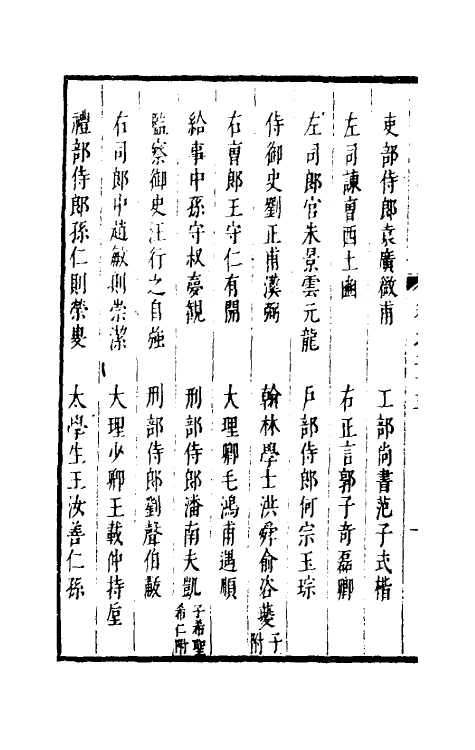 吏部侍郎袁廣微甫　工部尚書范子式楷
左司諫曹西士豳　右正言郭子奇磊卿
左司郎官朱景雲元龍　戶部侍郎何宗玉琮
侍御史劉正甫漢弼　翰林學士洪舜俞咨夔子附
右曹郎王守仁有開　大理卿毛鴻甫遇順
給事中孫守叔夢觀　刑部侍郎潘南夫凱子希聖希仁附
監察御史汪行之自強　刑部侍郎劉聲伯黻
右司郎中趙敏則崇潔　大理少卿王載仲持垕
禮部侍郎孫仁則榮叟　太學生王汝善仁孫